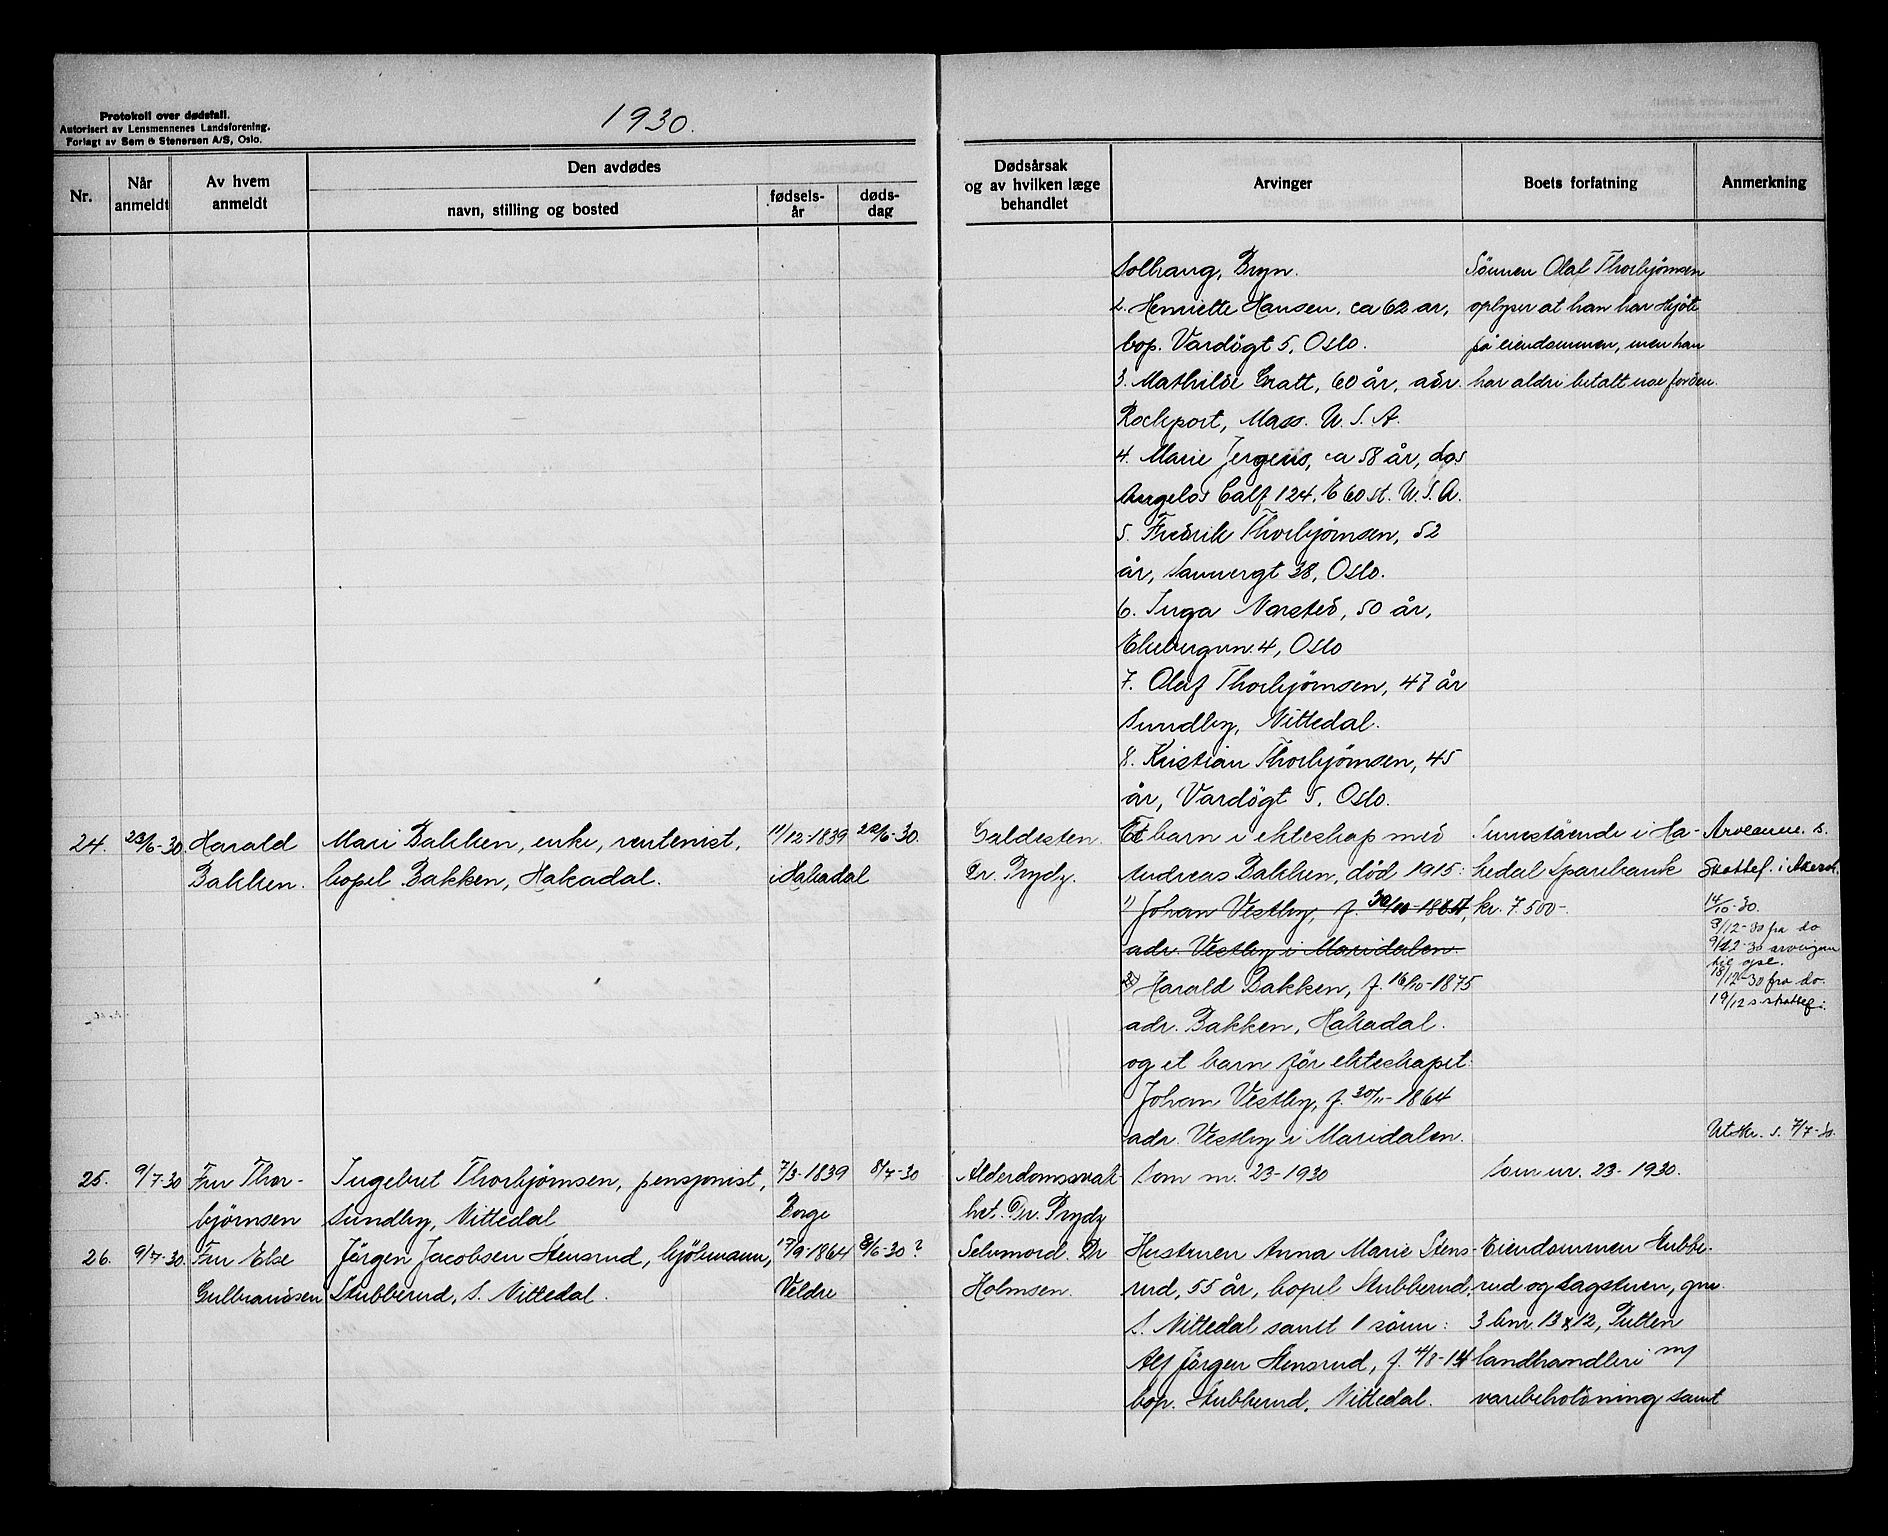 Protokoll over dødsfall.
Autorisert av Lensmennenes Landsforening.
Forlagt av Sem & Stenersen A/S, Oslo.
1930.
Nr.
Når anmeldt
Av hvem anmeldt
Den avdødes
navn, stilling og bosted
fødselsår
dødsdag
Dødsårsak
og av hvilken læge
behandlet
Arvinger
Boets forfatning
Anmerkning
Solhaug, Bryn.
2. Henriette Hansen, ca 62 år,
bop. Vardøgt 5, Oslo.
3. Mathilde Gratt, 60 år, adr.
Rockport, Mass. U.S.A.
4. Marie Jergens, ca 58 år, Los
Angelos Calf 124, E 60 st. U.S.A.
5. Fredrik Thorbjørnsen, 52
år, Sannergt 38, Oslo.
6. Inga Narsted, 50 år,
Ekebergvn. 4, Oslo
7. Olaf Thorbjørnsen, 47 år
Sundby, Nittedal.
8. Kristian Thorbjørnsen, 45
år, Vardøgt 5, Oslo.
Sønnen Olaf Thorbjørnsen
oplyser at han har skjøte
på eiendommen, men han
har aldri betalt noe for den.
24. 23/6-30 Harald
Bakken.
Mari Bakken, enke, rentenist,
bopel Bakken, Hakadal.
11/12-1839
i Hakadal
22/6-30.
Galdesten.
Dr. Prydz.
Et barn i ekteskap med
Andreas Bakken, død 1915:
1) Johan Vestby, f. 30/10-1864,
adr. Vestby i Maridalen.
2) Harald Bakken, f. 16/10-1875
adr. Bakken, Hakadal.
og et barn før ekteskapet:
Johan Vestby, f. 30/11-1864
adr. Vestby i Maridalen.
Innestående i Ha-
kedal Sparebank
kr. 7.500-.
Arveanm. s.
Skattef. i Aker
14/10-30.
9/12-30 fra do
9/12-30 arvingen
til
18/12-30 fra do.
19/12 s skattef:
Utskr. s. 7/7-30.
25. 9/7-30 Fru Thor-
bjørnsen
Ingebret Thorbjørnsen, pensjonist,
Sundby, Nittedal
7/3-1839
Borge
8/7-30
Alderdomssvak-
het. Dr. Prydz
Som nr. 23-1930
Som nr. 23-1930.
26. 9/7-30. Fru Else
Gulbrandsen
Jörgen Jacobsen Stensrud, kjøbmann,
Stubberud, S. Nittedal.
17/9-1864
Veldre
8/6-30?
Selvmord. Dr
Holmsen.
Hustruen Anna Marie Stens-
rud, 55 år, bopel Stubberud,
S. Nittedal samt 1 sønn:
Alf Jörgen Stensrud, f. 4/8-14
bop. Stubberud, Nittedal.
Eiendommen Stubbe-
rud og Dagstuen, gnr.
3 bnr. 13 & 12, Putten
landhandleri m/
varebeholdning samt